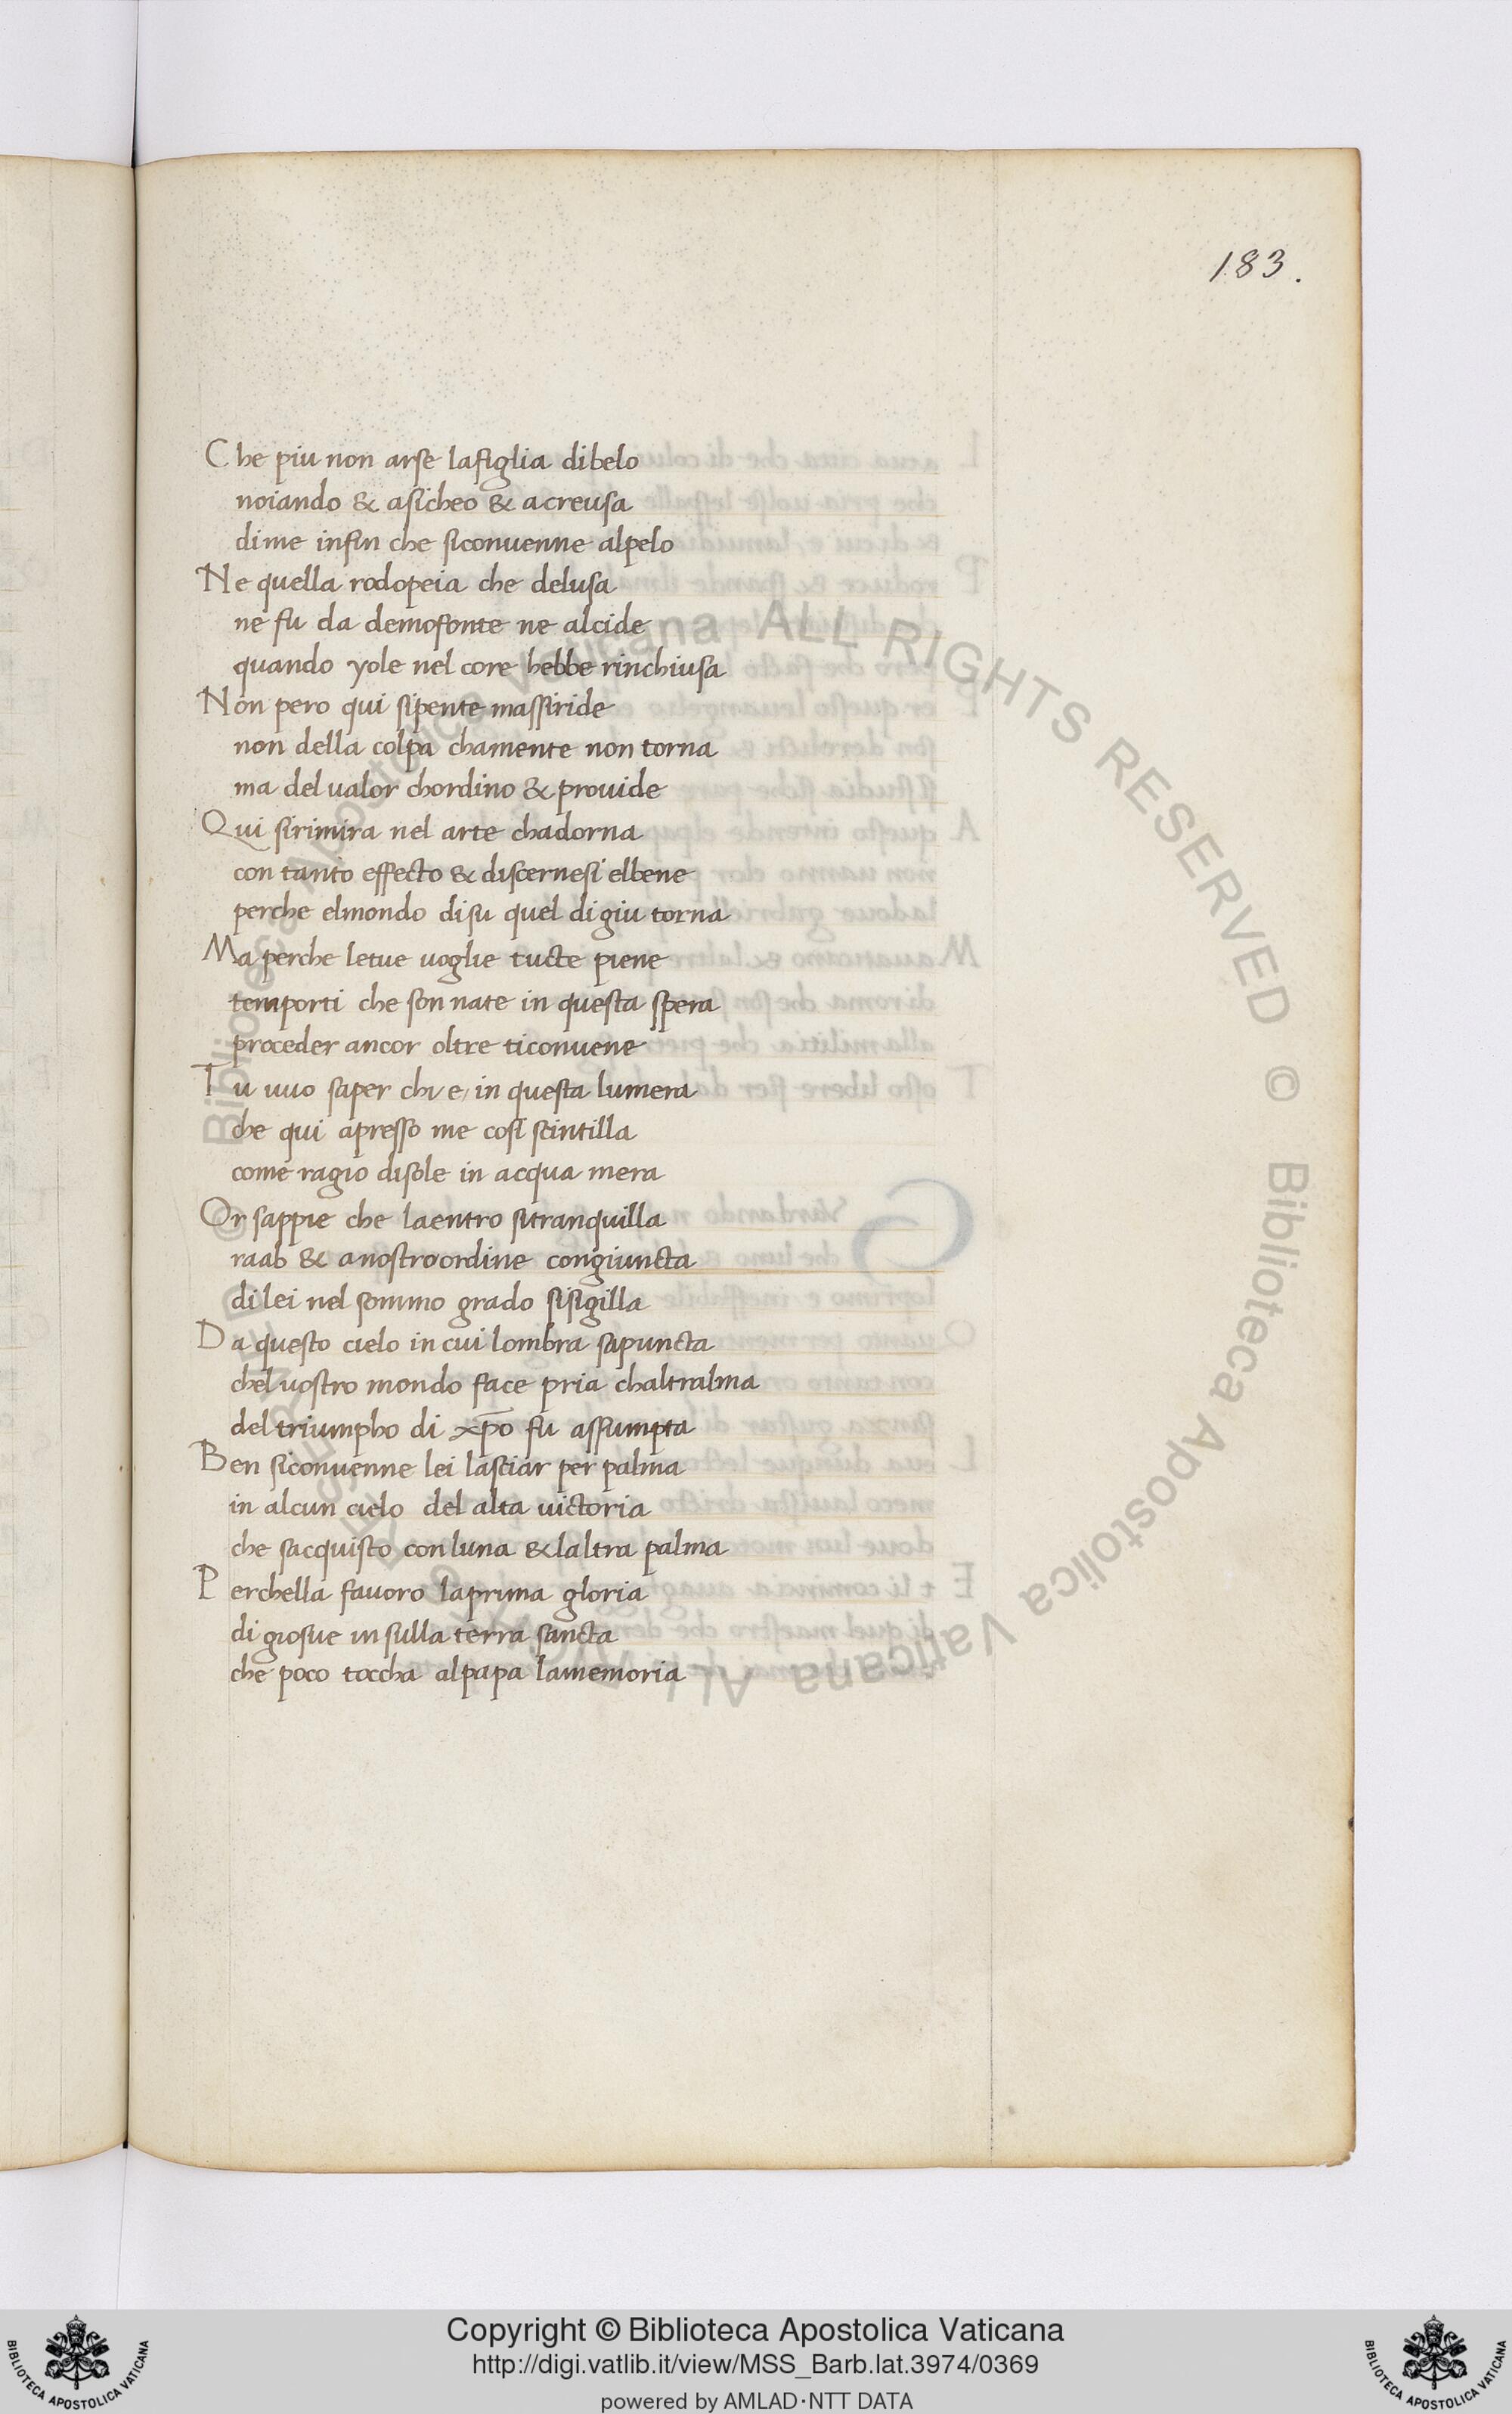 183.
Che piu non arse lafiglia dibelo
noiando & asicheo & acreusa
dime infin che siconuenne alpelo
Ne quella rodopeia che delusa
ne fu da demofonte ne alcide
quando yole nel core hebbe rinchiusa
Non pero qui sipente massiride
non della colpa chamente non torna
ma del ualor chordino & prouide
Qui sirimira nel arte chadorna
con tanto effecto & discernesi elbene
perche elmondo disu quel digiu torna
Ma perche letue uoglie tucte piene
temporti che son nate in questa spera
proceder ancor oltre ticonuene
Tu uuo saper chi e, in questa lumera
che qui apresso me cosi scintilla
come ragio disole in acqua mera
Or sappie che laentro sitranquilla
raab & anostroordine congiuncta
dilei nel sommo grado sisigilla
Da questo cielo in cui lombra sapuncta
chel uostro mondo face pria chaltralma
del triumpho di xp̄o fu assumpta
Ben siconuenne lei lasciar per palma
in alcun cielo del alta uictoria
che sacquisto conluna & laltra palma
Perchella fauoro laprima gloria
di giosue in sulla terra sancta
che poco toccha alpapa lamemoria
© Biblioteca Apostolica Vaticana ALL RIGHTS RESERVED © Biblioteca Apostolica Vaticana ALL RIGHTS RESERVED
BIBLIOTECA APOSTOLICA VATICANA
Copyright © Biblioteca Apostolica Vaticana
http://digi.vatlib.it/view/MSS_Barb.lat.3974/0369
powered by AMLAD·NTT DATA
BIBLIOTECA APOSTOLICA VATICANA